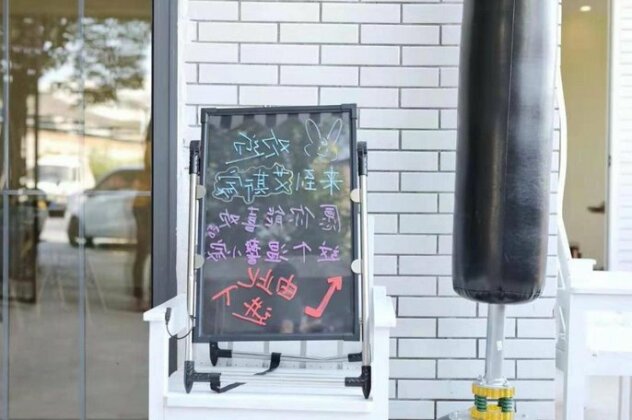 欢迎
来到艾斯家
愿你能喜欢
这个温馨小窝
由此
进